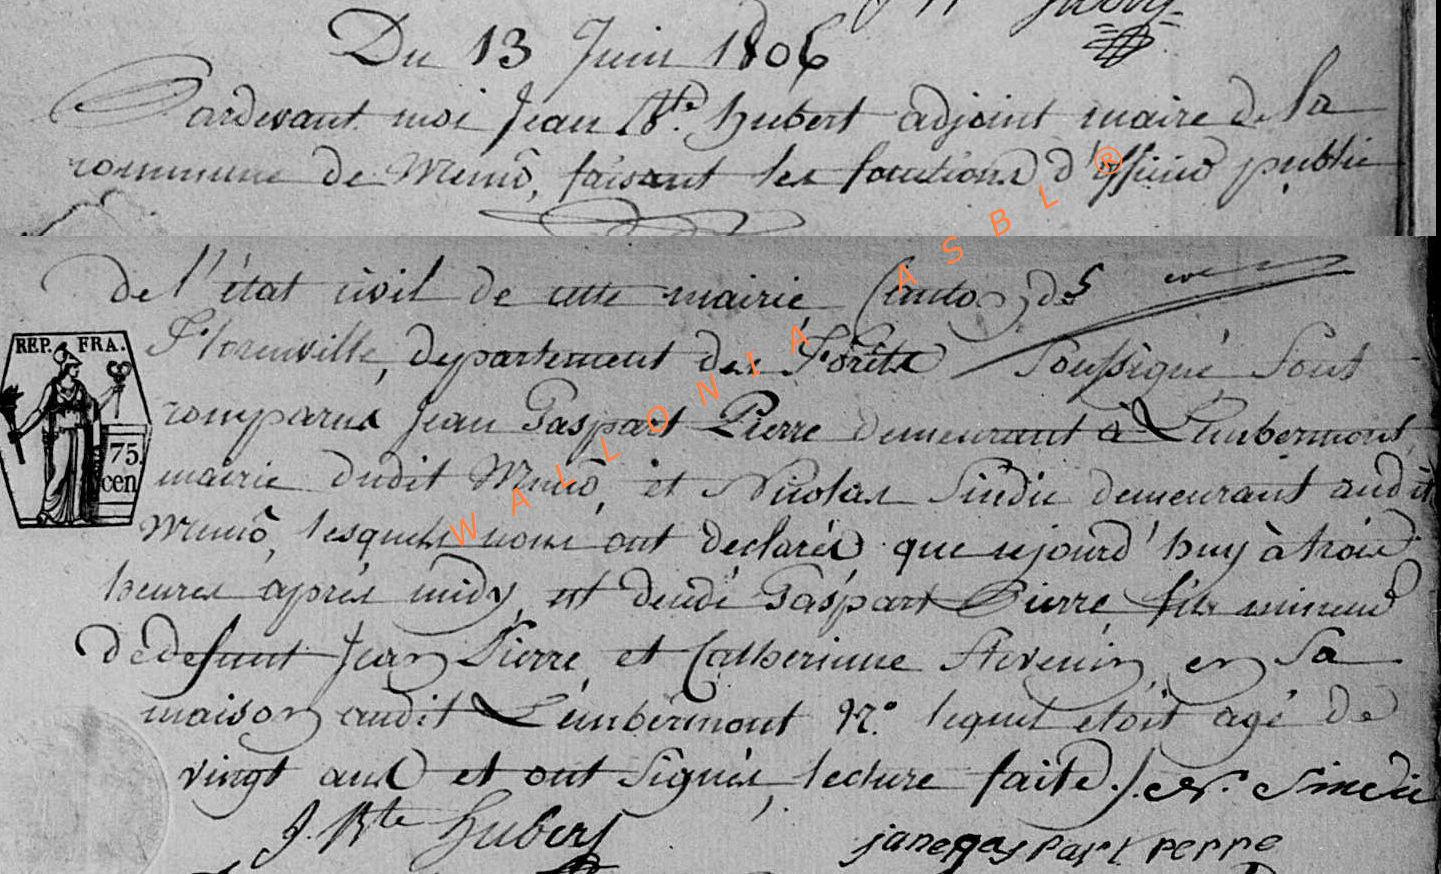 Du 13 Juin 1806
Pardevant moi Jean Bte. hubert adjoint maire de la
commune de Muno, faisant les fonctions d'officier public
de l'état civil de cette mairie, Canton de
Florenville, departement des Forêts Soussigné Sont
comparus Jean Gaspart Pierre demeurant à Lambermont
mairie dudit Muno, et Nicolas Sindic demeurant audit
Muno, lesquels nous ont declarés que cejourd'huy à trois
heures après midy, est decedé Gaspart Pierre, fils mineur
de defunt Jean Pierre, et Catherinne Stevenin, en Sa
maison audit Lambermont N.° lequel etoit agé de
vingt ans et ont Signés, lecture faite./. N. Sindic
J. Bte Hubert
janegaspart perre
REP. FRA.
75.
cen
WALLONIA ASBL ®